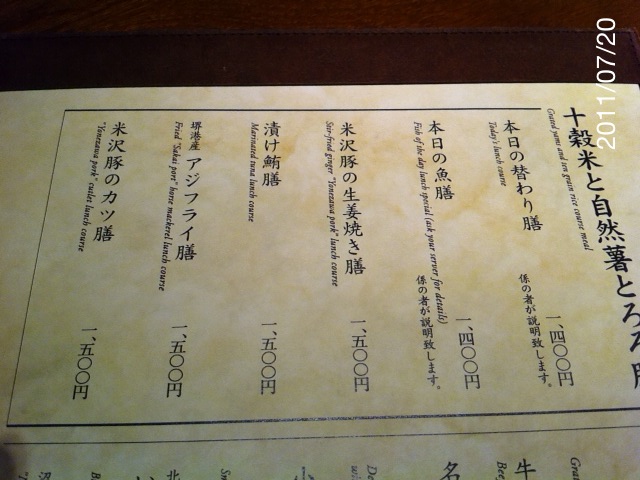 2011/07/20
十穀米と自然薯とろろ
Grand yams and ten grain rice course meal
本日の替わり膳
係の者が説明致します。
一、四〇〇円
Today's lunch course
本日の魚膳
係の者が説明致します。
一、四〇〇円
Fish of the day lunch special (ask your server for details)
米沢豚の生姜焼き膳
一、五〇〇円
Stir-fried ginger "Yonezawa pork" lunch course
漬け鮪膳
一、五〇〇円
Marinated tuna lunch course
堺港産 アジフライ膳
一、五〇〇円
Fried "Sakai port" horse mackerel lunch course
米沢豚のカツ膳
一、五〇〇円
"Yonezawa pork" cutlet lunch course
牛
名
北